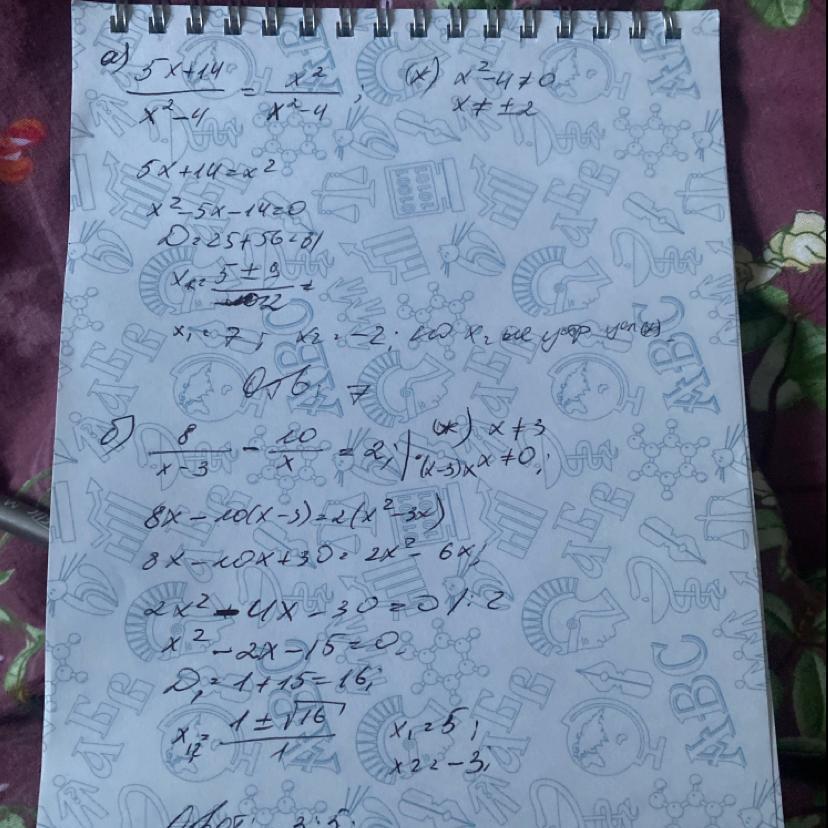 а) (5x+14)/(x²-4) = x²/(x²-4); (x) x²-4≠0
x≠±2
5x+14=x²
x²-5x-14=0
D=25+56=81
x₁₂=(5±9)/2=
x₁=7; x₂=-2. но x₂ не удовр усл(x).
Отв: 7
б) 8/(x-3) - 10/x = 2; |·(x-3)x (*) x≠3
x≠0;
8x-10(x-3)=2(x²-3x)
8x-10x+30=2x²-6x;
2x²-4x-30=0 |:2
x²-2x-15=0.
D₁=1+15=16;
x₁₂=(1±√16)/1 x₁=5;
x₂=-3;
Ответ: -3; 5.
ABC